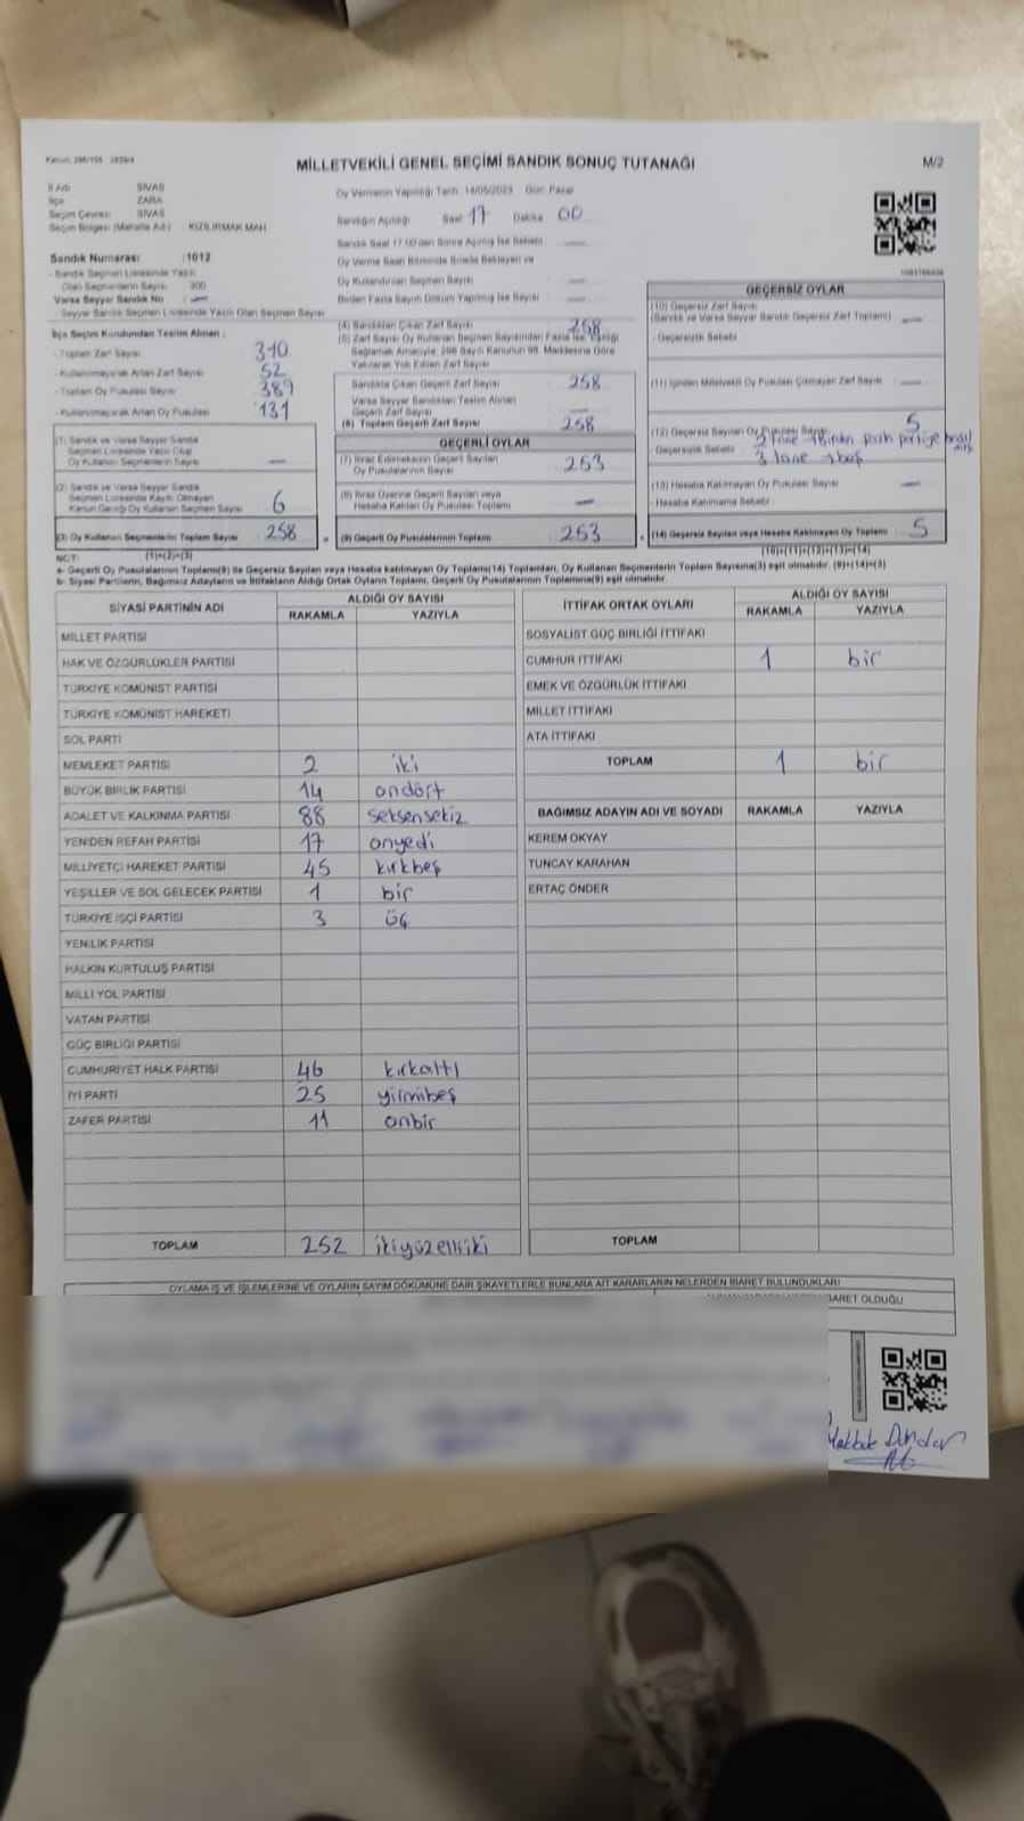 MİLLETVEKİLİ GENEL SEÇİMİ SANDIK SONUÇ TUTANAĞI
M/2
İl Adı SİVAS
İlçe ZARA
Seçim Çevresi SİVAS
Seçim Bölgesi (Mahalle Adı) : KIZILIRMAK MAH.
Sandık Numarası :1012
- Sandık Seçmen Listesinde Yazılı
Olan Seçmenlerin Sayısı 300
Varsa Seyyar Sandık No : —
Seyyar Sandık Seçmen Listesinde Yazılı Olan Seçmen Sayısı
Oy Vermenin Yapıldığı Tarih : 14/05/2023 Gün: Pazar
Sandığın Açıldığı Saat 17 Dakika 00
Sandık Saat 17.00'den Sonra Açılmış İse Sebebi : —
Oy Verme Saati Bitiminde Sırada Bekleyen ve
Oy Kullandırılan Seçmen Sayısı —
Birden Fazla Sayım Döküm Yapılmış İse Sayısı —
İlçe Seçim Kurulundan Teslim Alınan :
- Toplam Zarf Sayısı 310
- Kullanılmayarak Artan Zarf Sayısı 52
- Toplam Oy Pusulası Sayısı 389
- Kullanılmayarak Artan Oy Pusulası 131
(1) Sandık ve Varsa Seyyar Sandık
Seçmen Listesinde Yazılı Olup
Oy Kullanan Seçmenlerin Sayısı —
(2) Sandık ve Varsa Seyyar Sandık
Seçmen Listesinde Kayıtlı Olmayan
Kanun Gereği Oy Kullanan Seçmen Sayısı 6
(3) Oy Kullanan Seçmenlerin Toplam Sayısı 258
(1)+(2)=(3)
(4) Sandıktan Çıkan Zarf Sayısı 268
(5) Zarf Sayısı Oy Kullanan Seçmen Sayısından Fazla İse, Eşitliği
Sağlamak Amacıyla; 298 Sayılı Kanunun 98. Maddesine Göre
Yakılarak Yok Edilen Zarf Sayısı
Sandıkta Çıkan Geçerli Zarf Sayısı 258
Varsa Seyyar Sandıktan Teslim Alınan
Geçerli Zarf Sayısı —
(6) Toplam Geçerli Zarf Sayısı 258
GEÇERLİ OYLAR
(7) İtiraz Edilmeksizin Geçerli Sayılan
Oy Pusulalarının Sayısı 253
(8) İtiraz Üzerine Geçerli Sayılan veya
Hesaba Katılan Oy Pusulası Toplamı —
(9) Geçerli Oy Pusulalarının Toplamı 253
GEÇERSİZ OYLAR
(10) Geçersiz Zarf Sayısı
(Sandık ve Varsa Seyyar Sandık Geçersiz Zarf Toplamı) —
- Geçersizlik Sebebi
(11) İçinden Milletvekili Oy Pusulası Çıkmayan Zarf Sayısı —
(12) Geçersiz Sayılan Oy Pusulası Sayısı 5
Geçersizlik Sebebi 2 tane 1'den fazla partiye
3 tane boş
(13) Hesaba Katılmayan Oy Pusulası Sayısı —
- Hesaba Katılmama Sebebi
(14) Geçersiz Sayılan veya Hesaba Katılmayan Oy Toplamı 5
(10)+(11)+(12)+(13)=(14)
NOT:
a- Geçerli Oy Pusulalarının Toplamı(9) ile Geçersiz Sayılan veya Hesaba katılmayan Oy Toplamı(14) Toplamları, Oy Kullanan Seçmenlerin Toplam Sayısına(3) eşit olmalıdır. (9)+(14)=(3)
b- Siyasi Partilerin, Bağımsız Adayların ve İttifakların Aldığı Ortak Oyların Toplamı, Geçerli Oy Pusulalarının Toplamına(9) eşit olmalıdır.
SİYASİ PARTİNİN ADI ALDIĞI OY SAYISI
RAKAMLA YAZIYLA
MİLLET PARTİSİ
HAK VE ÖZGÜRLÜKLER PARTİSİ
TÜRKİYE KOMÜNİST PARTİSİ
TÜRKİYE KOMÜNİST HAREKETİ
SOL PARTİ
MEMLEKET PARTİSİ 2 iki
BÜYÜK BİRLİK PARTİSİ 14 ondört
ADALET VE KALKINMA PARTİSİ 88 seksensekiz
YENİDEN REFAH PARTİSİ 17 onyedi
MİLLİYETÇİ HAREKET PARTİSİ 45 kırkbeş
YEŞİLLER VE SOL GELECEK PARTİSİ 1 bir
TÜRKİYE İŞÇİ PARTİSİ 3 üç
YENİLİK PARTİSİ
HALKIN KURTULUŞ PARTİSİ
MİLLİ YOL PARTİSİ
VATAN PARTİSİ
GÜÇ BİRLİĞİ PARTİSİ
CUMHURİYET HALK PARTİSİ 46 kırkaltı
İYİ PARTİ 25 yirmibeş
ZAFER PARTİSİ 11 onbir
TOPLAM 252 ikiyüzelliiki
İTTİFAK ORTAK OYLARI ALDIĞI OY SAYISI
RAKAMLA YAZIYLA
SOSYALİST GÜÇ BİRLİĞİ İTTİFAKI
CUMHUR İTTİFAKI 1 bir
EMEK VE ÖZGÜRLÜK İTTİFAKI
MİLLET İTTİFAKI
ATA İTTİFAKI
TOPLAM 1 bir
BAĞIMSIZ ADAYIN ADI VE SOYADI RAKAMLA YAZIYLA
KEREM OKYAY
TUNCAY KARAHAN
ERTAÇ ÖNDER
TOPLAM
OYLAMA İŞ VE İŞLEMLERİNE VE OYLARIN SAYIM DÖKÜMÜNE DAİR ŞİKAYETLERLE BUNLARA AİT KARARLARIN NELERDEN İBARET BULUNDUKLARI
BARET OLDUĞU